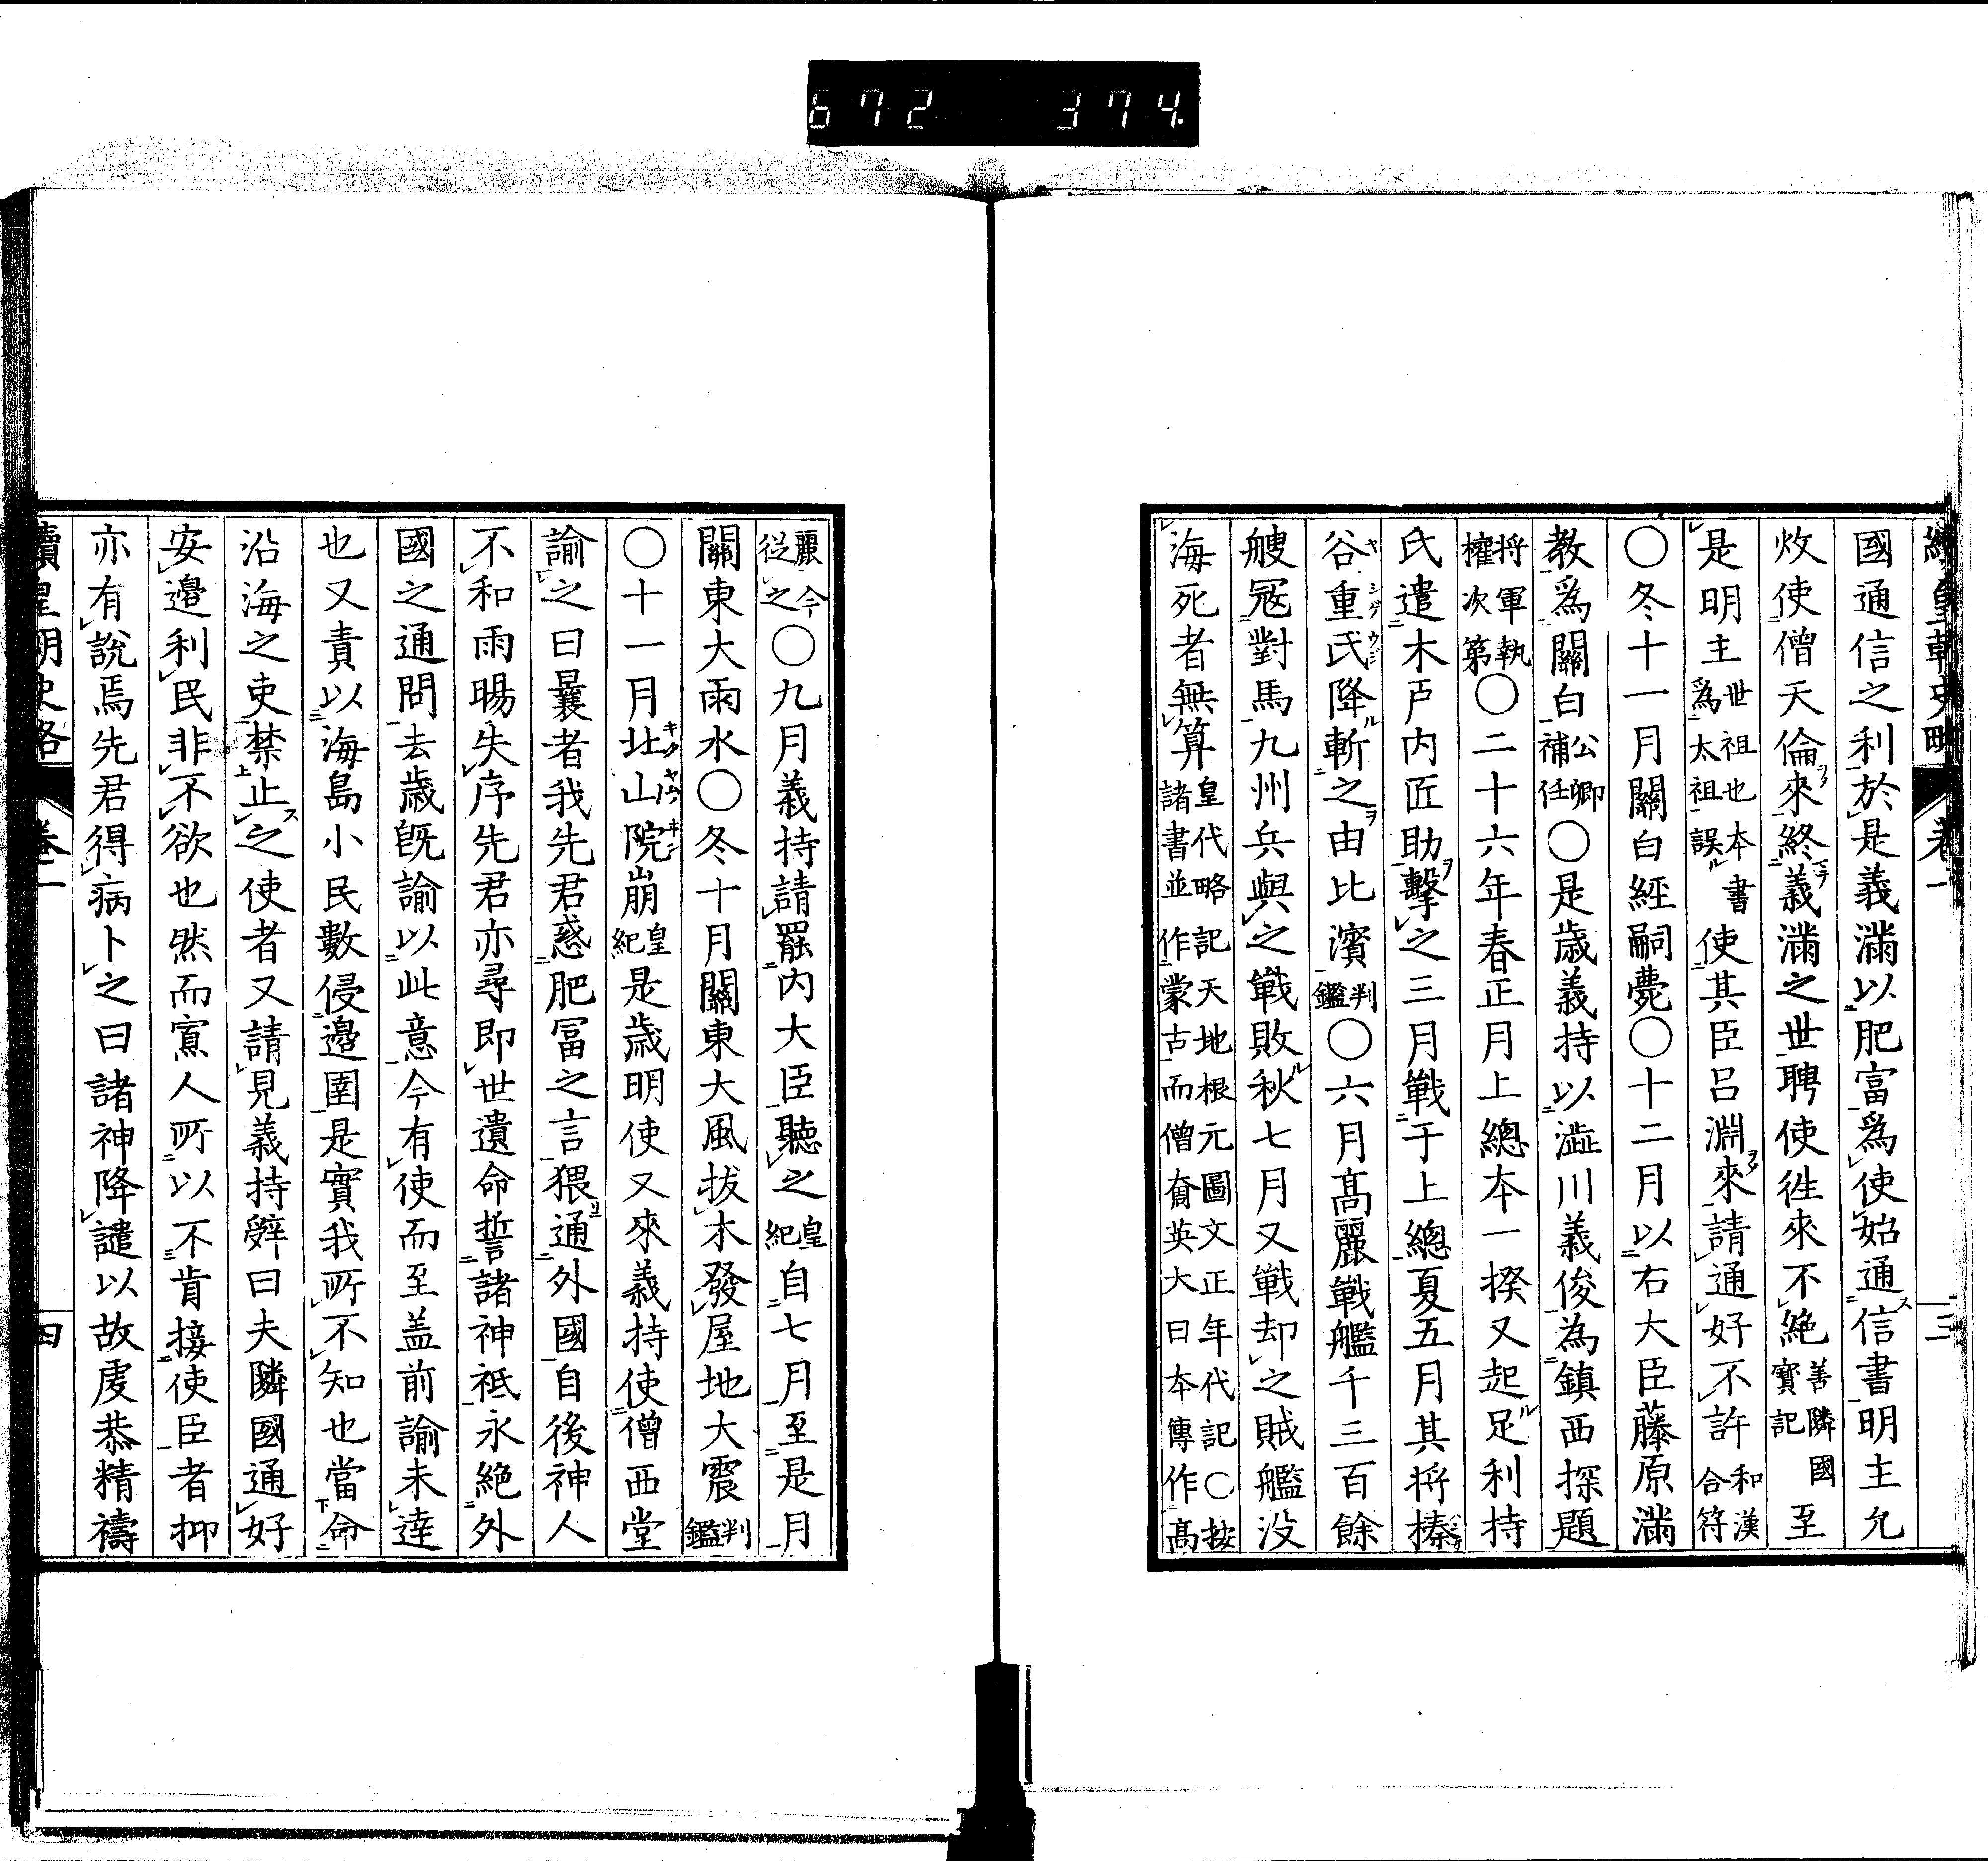 672 374.
續皇朝史略 卷一 三
國通信之利於是義滿以肥富爲使始通信書明主允
攷使僧天倫來終義滿之世聘使往來不絶善隣國寳記至
是明主世祖也本書爲太祖誤使其臣呂淵來請通好不許和漢合符
〇冬十一月關白經嗣薨〇十二月以右大臣藤原滿
教爲關白公卿補任〇是歳義持以澁川義俊為鎮西探題
将軍執權次第〇二十六年春正月上總本一揆又起足利持
氏遣木戸内匠助擊之三月戰于上總夏五月其将榛
谷重氏降斬之由比濱判鑑〇六月髙麗戰艦千三百餘
艘寇對馬九州兵與之戰敗秋七月又戰却之賊艦没
海死者無算皇代略記天地根元圖文正年代記〇按諸書並作蒙古而僧奝英大日本傳作髙
麗今從之〇九月義持請罷内大臣聽之皇紀自七月至是月
關東大雨水〇冬十月關東大風拔木發屋地大震判鑑
〇十一月北山院崩皇紀是歳明使又來義持使僧西堂
諭之曰曩者我先君惑肥冨之言猥通外國自後神人
不和雨暘失序先君亦尋即世遺命誓諸神祗永絶外
國之通問去歳既諭以此意今有使而至盖前諭未達
也又責以海島小民數侵邉圉是實我所不知也當命
沿海之吏禁止之使者又請見義持辭曰夫隣國通好
安邉利民非不欲也然而寡人所以不肯接使臣者抑
亦有說焉先君得病卜之曰諸神降譴以故虔恭精禱
續皇朝史略 卷一 四